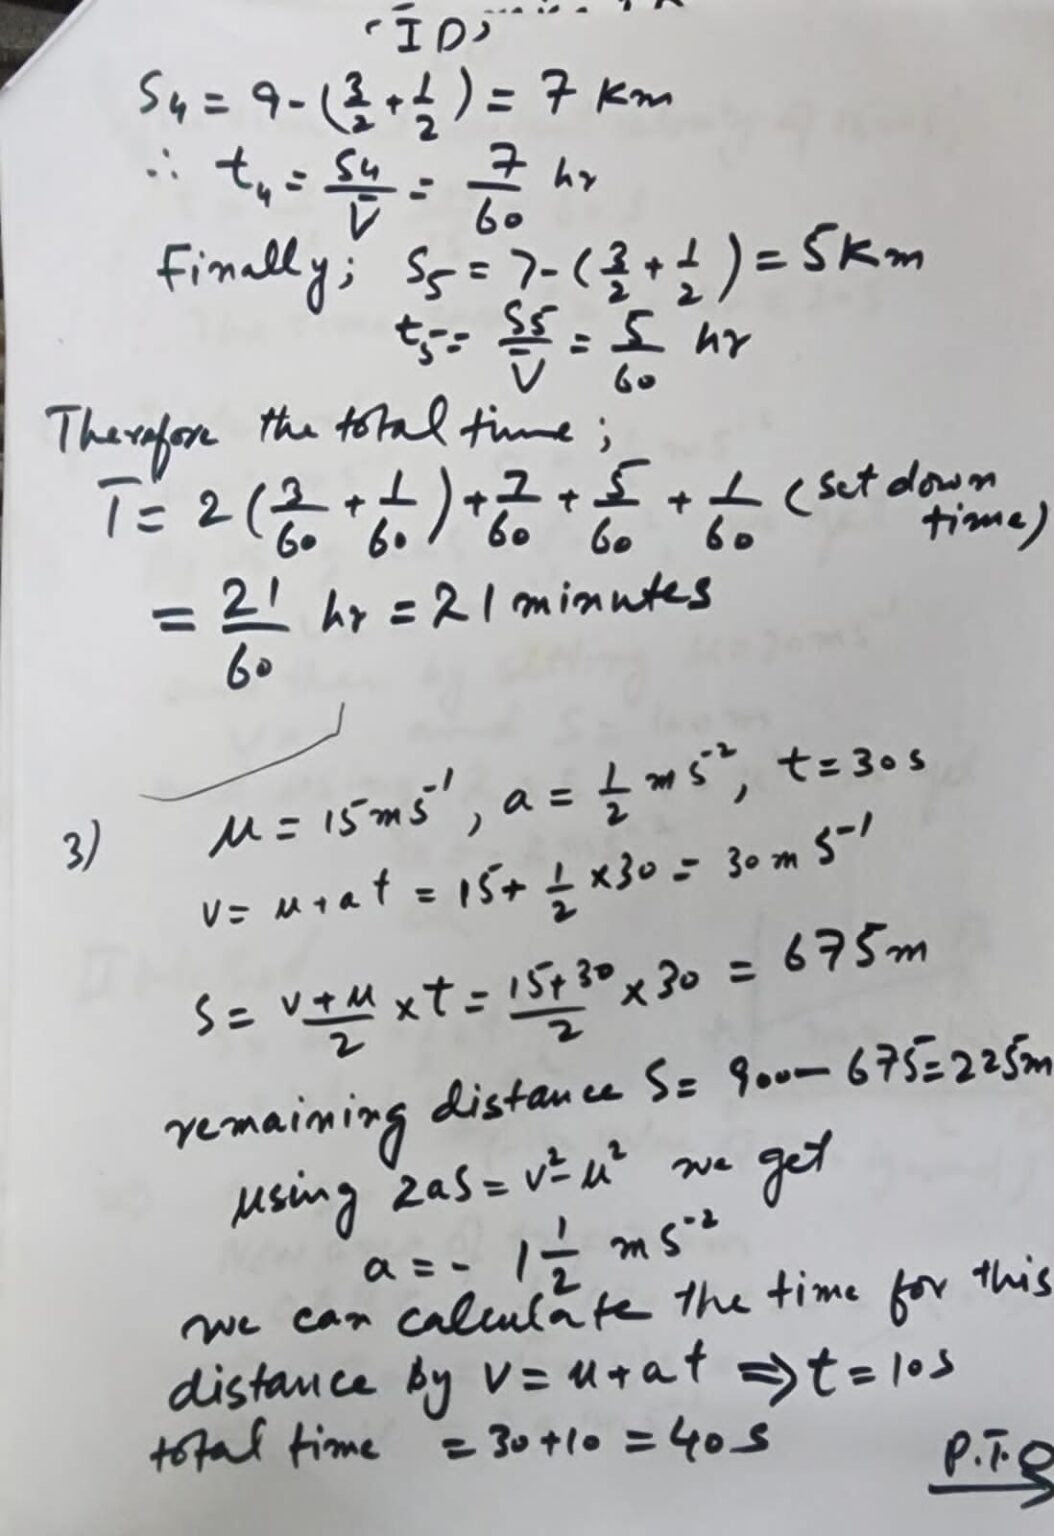 ID,
S₄ = 9 - (3/2 + 1/2) = 7 Km
∴ t₄ = S₄/V̄ = 7/60 hr
Finally; S₅ = 7 - (3/2 + 1/2) = 5 Km
t₅ = S5/V̄ = 5/60 hr
Therefore the total time;
T = 2(3/60 + 1/60) + 7/60 + 5/60 + 1/60 (set down
time)
= 21/60 hr = 21 minutes
3) u = 15 m s⁻¹, a = 1/2 m s⁻², t = 30 s
v = u + at = 15 + 1/2 × 30 = 30 m s⁻¹
S = (v + u)/2 × t = (15 + 30)/2 × 30 = 675 m
remaining distance S = 900 - 675 = 225 m
using 2aS = v² - u² we get
a = - 1 1/2 m s⁻²
we can calculate the time for this
distance by v = u + at ⇒ t = 10 s
total time = 30 + 10 = 40 s
P.T.O